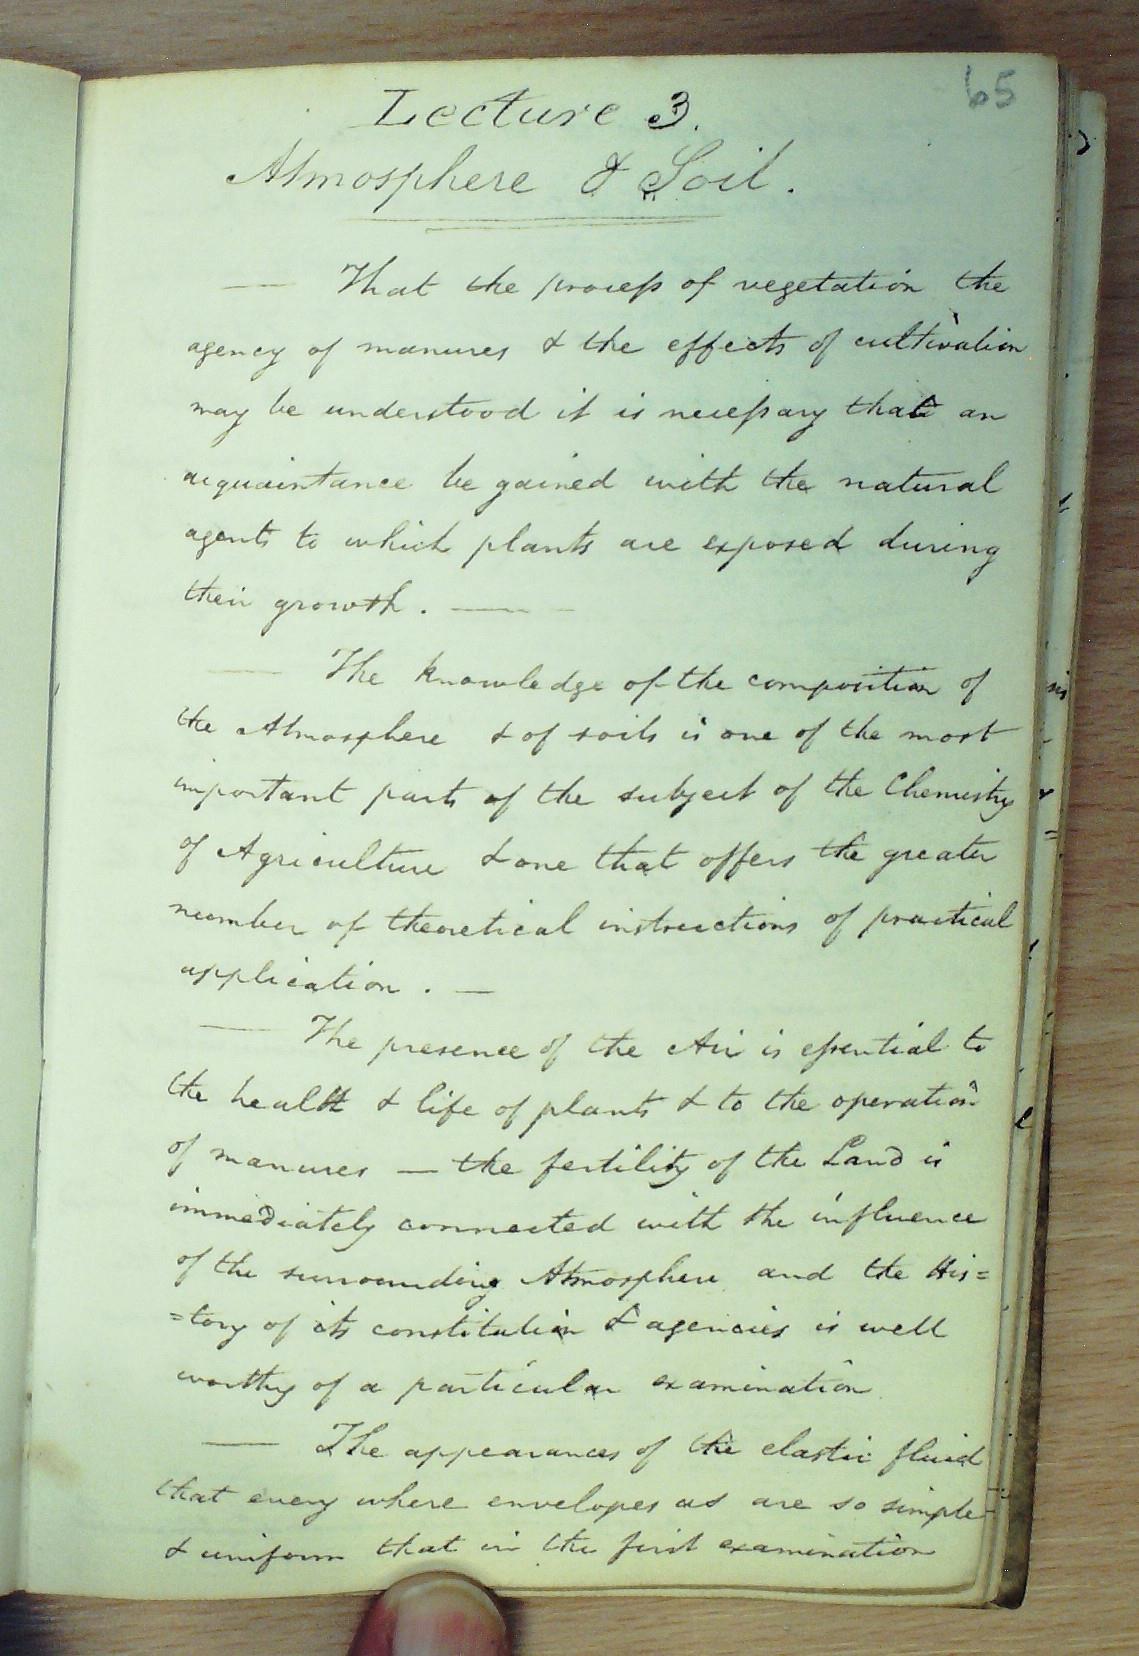 65
Lecture 3.
Atmosphere & Soil.
— That the process of vegetation the
agency of manures & the effects of cultivation
may be understood it is necessary that an
acquaintance be gained with the natural
agents to which plants are exposed during
their growth. —
— The knowledge of the composition of
the Atmosphere & of soils is one of the most
important parts of the subject of the Chemistry
of Agriculture & one that offers the greater
number of theoretical instructions of practical
application. —
— The presence of the Air is essential to
the health & life of plants & to the operation
of manures — the fertility of the Land is
immediately connected with the influence
of the surrounding Atmosphere and the His=
=tory of its constitution & agencies is well
worthy of a particular examination
— The appearances of the elastic fluid
that every where envelopes us are so simple
& uniform that in the first examination